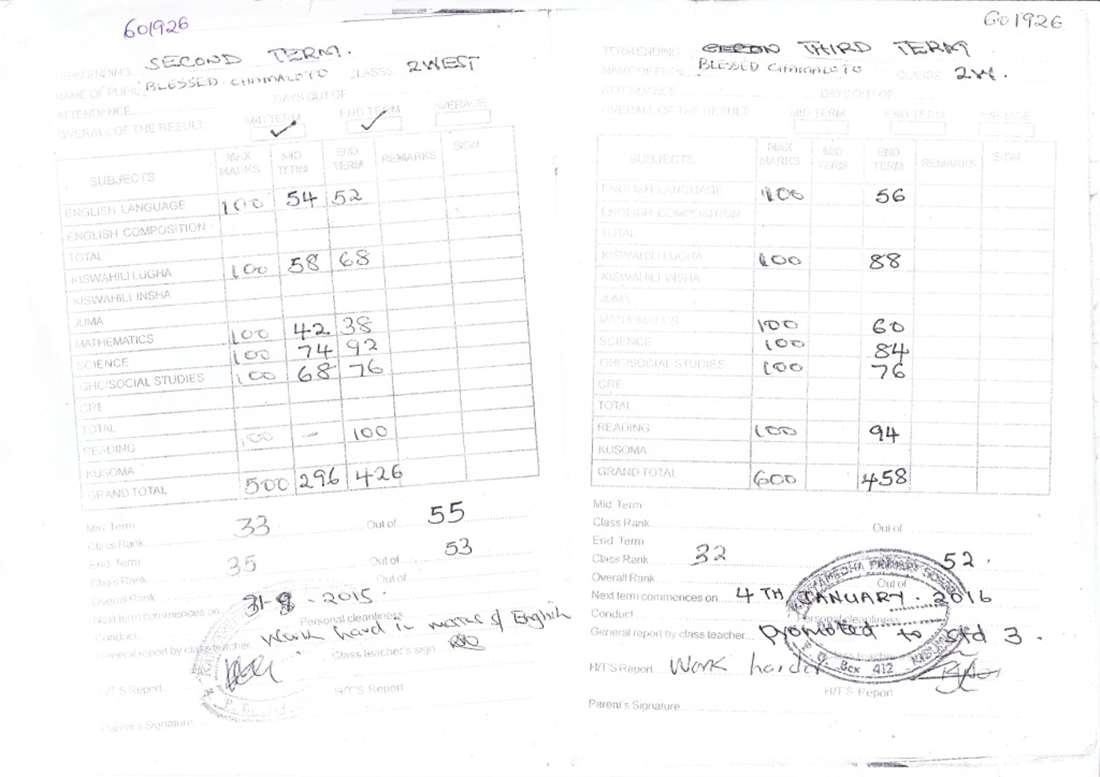 601926
SECOND TERM.
TERM ENDING
NAME OF PUPIL BLESSED CHAMALOTO CLASSS 2WEST
ATTENDANCE DAYS OUT OF
OVERALL OF THE RESULT MID TERM ✓ END TERM ✓ AVERAGE
SUBJECTS MAX MARKS MID TERM END TERM REMARKS SIGN
ENGLISH LANGUAGE 100 54 52
ENGLISH COMPOSITION
TOTAL
KISWAHILI LUGHA 100 58 68
KISWAHILI INSHA
JUMA
MATHEMATICS 100 42 38
SCIENCE 100 74 92
GHC/SOCIAL STUDIES 100 68 76
CRE
TOTAL
READING 100 - 100
KUSOMA
GRAND TOTAL 500 296 426
Mid Term
Class Rank 33 Out of 55
End Term
Class Rank 35 Out of 53
Overall Rank Out of
Next term commences on 31-8-2015.
Conduct Personal cleanliness
General report by class teacher Work hard in maths & English
Class teacher's sign
H/T'S Report H/T'S Report
Parent's Signature
601926
TERM ENDING THIRD TERM
NAME OF PUPIL BLESSED CHAMALOTO 2W.
ATTENDANCE DAYS OUT OF
OVERALL OF THE RESULT MID TERM END TERM AVERAGE
SUBJECTS MAX MARKS MID TERM END TERM REMARKS SIGN
ENGLISH LANGUAGE 100 56
ENGLISH COMPOSITION
TOTAL
KISWAHILI LUGHA 100 88
KISWAHILI INSHA
JUMA
MATHEMATICS 100 60
SCIENCE 100 84
GHC/SOCIAL STUDIES 100 76
CRE
TOTAL
READING 100 94
KUSOMA
GRAND TOTAL 600 458
Mid Term
Class Rank Out of
End Term
Class Rank 32 52.
Overall Rank Out of
Next term commences on 4TH JANUARY. 2016
Conduct Personal cleanliness
General report by class teacher promoted to std 3.
PRIMARY SCHOOL
P. O. Box 412
H/T'S Report Work harder
H/T'S Report
Parent's Signature